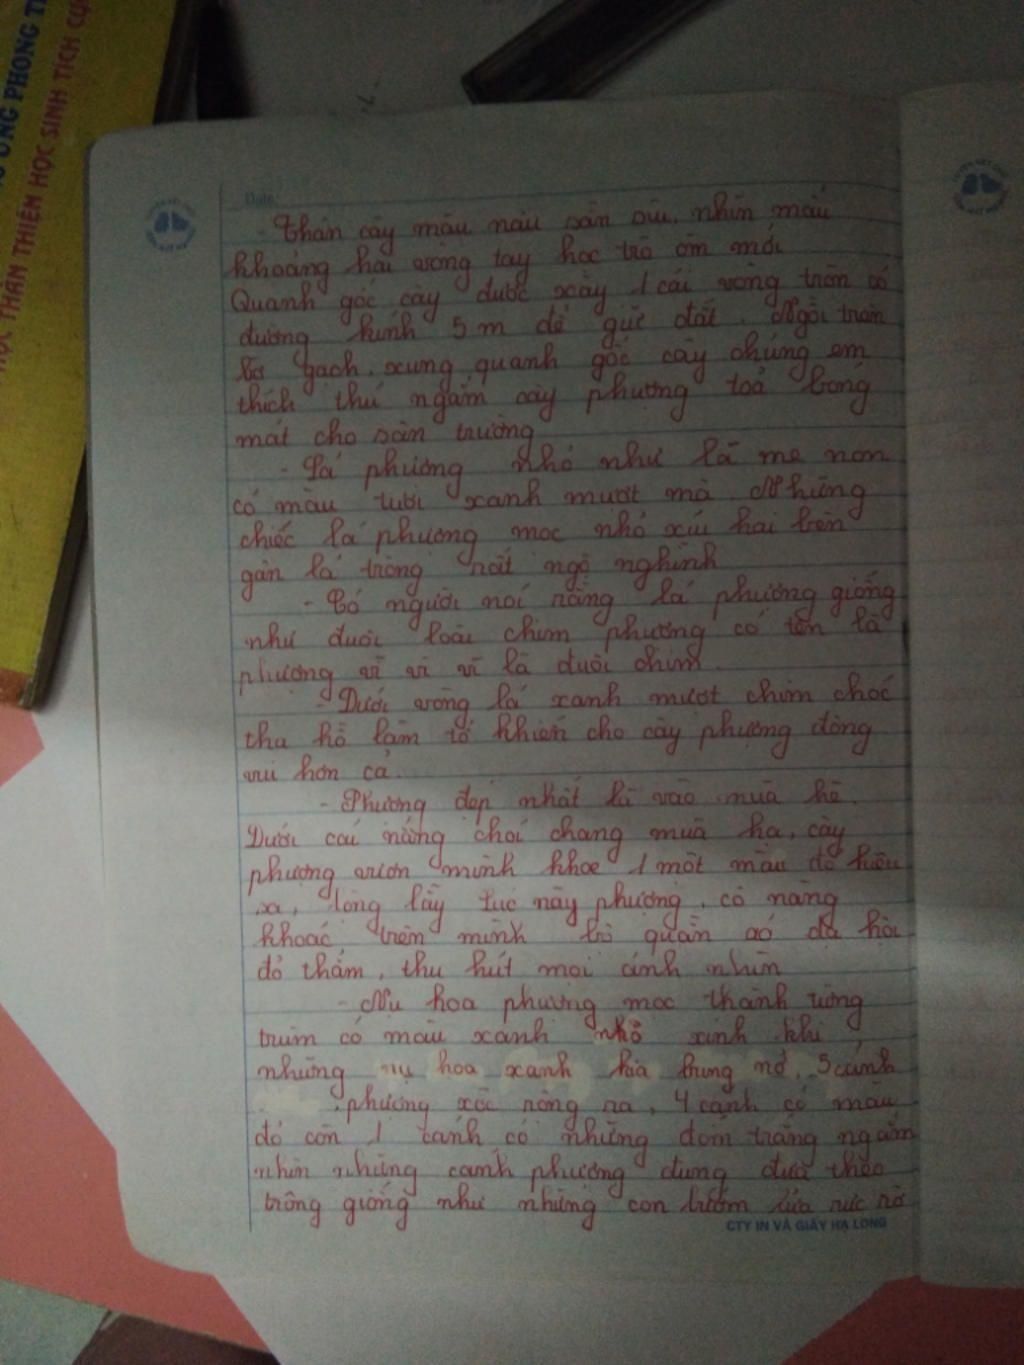 ƯƠNG PHONG T
HỌC THÂN THIỆN HỌC SINH TÍCH CỰ
Date:
- Thân cây màu nâu sần sùi, nhìn mấu
khoảng hai vòng tay học trò ôm mới
Quanh gốc cây được xây 1 cái vòng tròn có
đường kính 5m để giữ đất. Ngồi trên
bờ gạch, xung quanh gốc cây chúng em
thích thú ngắm cây phượng toả bóng
mát cho sân trường
- Lá phượng nhỏ như lá me non
có màu tươi xanh mượt mà. Những
chiếc lá phượng mọc nhỏ xíu hai bên
gân lá trông rất ngộ nghĩnh
- Có người nói rằng lá phượng giống
như đuôi loài chim phượng có tên là
phượng vĩ vì vĩ là đuôi chim.
- Dưới vòng lá xanh mượt chim chóc
tha hồ làm tổ khiến cho cây phượng đông
vui hơn cả.
- Phượng đẹp nhất là vào mùa hè.
Dưới cái nắng chói chang mùa hạ, cây
phượng vươn mình khoe 1 một màu đỏ kiêu
xa, lộng lẫy lúc này phượng, cô nàng
khoác trên mình bộ quần áo dạ hội
đỏ thắm, thu hút mọi ánh nhìn
- Nụ hoa phượng mọc thành từng
trùm có màu xanh nhỏ xinh khi
những nụ hoa xanh kia bung nở, 5 cánh
phượng xòe rộng ra, 4 cánh có màu
đỏ còn 1 cánh có những đốm trắng ngắm
nhìn những cánh phượng đung đưa theo
trông giống như những con bướm lửa rực rỡ
CTY IN VÀ GIẤY HẠ LONG